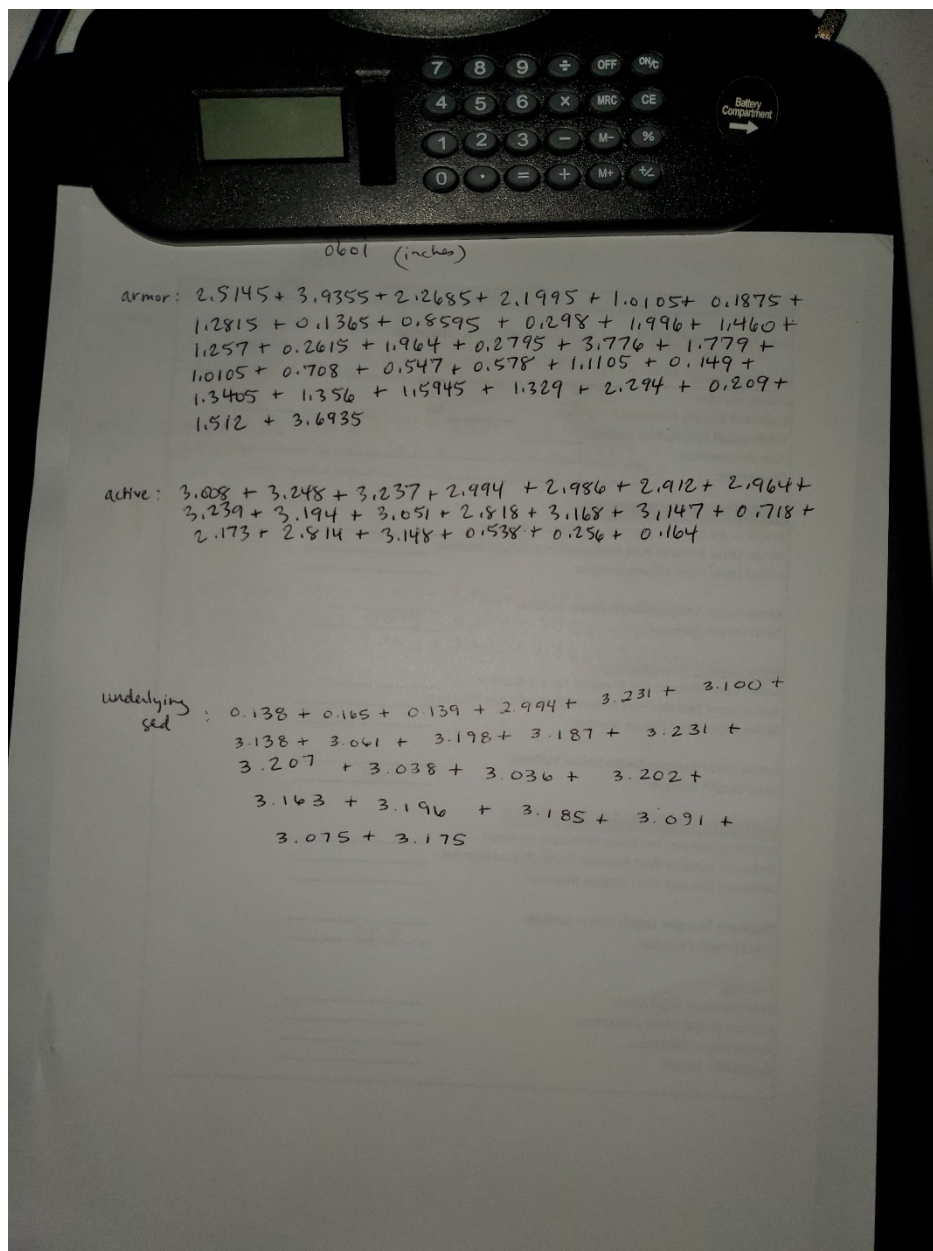 7 8 9 ÷ OFF ON/C
4 5 6 X MRC CE
1 2 3 - M- %
0 . = + M+ +/-
Battery
Compartment
0601 (inches)
armor: 2.5145 + 3.9355 + 2.2685 + 2.1995 + 1.0105 + 0.1875 +
1.2815 + 0.1365 + 0.8595 + 0.298 + 1.996 + 1.460 +
1.257 + 0.2615 + 1.964 + 0.2795 + 3.776 + 1.779 +
1.0105 + 0.708 + 0.547 + 0.578 + 1.1105 + 0.149 +
1.3405 + 1.356 + 1.5945 + 1.329 + 2.294 + 0.209 +
1.512 + 3.6935
active: 3.008 + 3.248 + 3.237 + 2.994 + 2.986 + 2.912 + 2.964 +
3.239 + 3.194 + 3.051 + 2.818 + 3.168 + 3.147 + 0.718 +
2.173 + 2.814 + 3.148 + 0.538 + 0.256 + 0.164
underlying
sed : 0.138 + 0.165 + 0.139 + 2.994 + 3.231 + 3.100 +
3.138 + 3.061 + 3.198 + 3.187 + 3.231 +
3.207 + 3.038 + 3.036 + 3.202 +
3.163 + 3.196 + 3.185 + 3.091 +
3.075 + 3.175